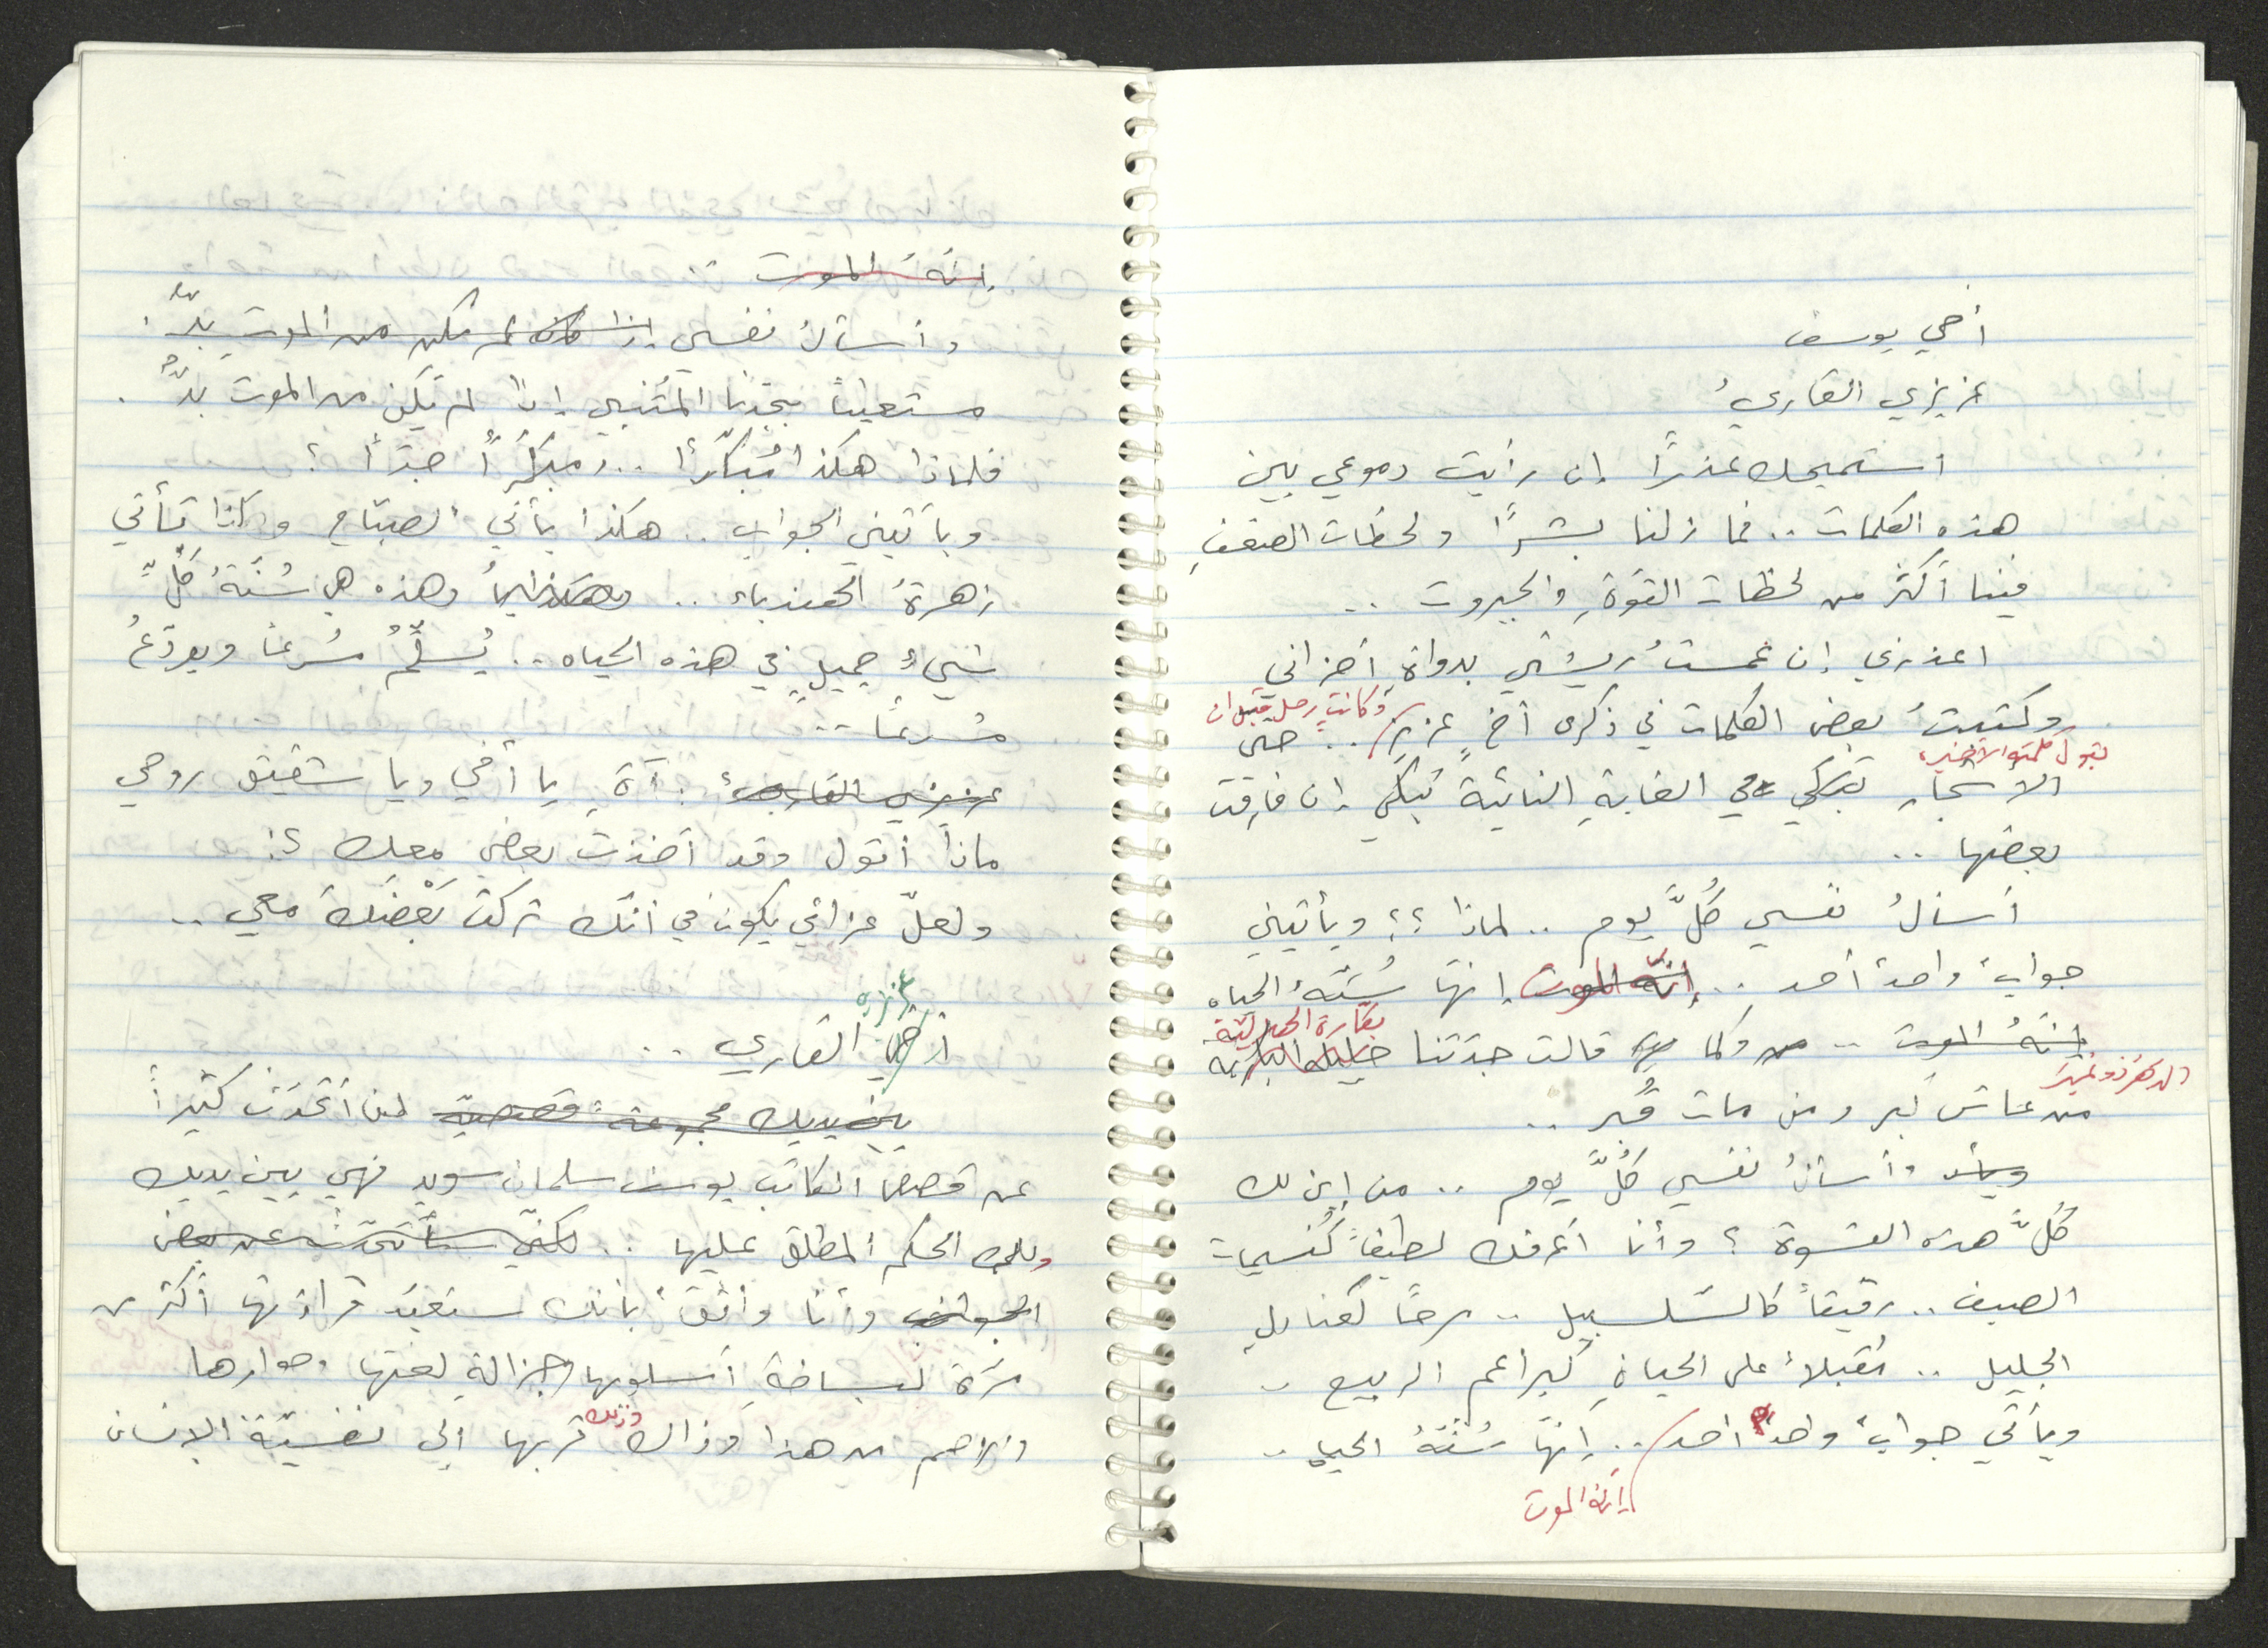 أخي يوسف
عزيزي القارئ
استميحك عذرًا إن رأيت دموعي بين
هذه الكلمات .. فما زلنا بشرًا ولحظات الضعف
فينا أكثر من لحظات القوّةِ والجبروت ..
اعذرني إن غمستُ ريشتي بدواة أحزاني
وكتبتُ بعض الكلمات في ذكرى أخٍ عزيزٍ .. حتى
وكانت رحل قبل ان
يقول كلمته الأخيرة
الأشجار تبكي في الغابةِ النائية تبكي إن فارقت
بعضها ..
أسألُ نفسي كُلَّ يوم .. لماذا ؟؟ ويأتيني
جوابٌ واحدٌ أحد .. إنّه الموت إنّها سُنّةُ الحياه
إنّهُ الموت .. وكما قالت جدّتنا
بكارة الجبراليّة
الدهر ذو غِيَر
من عاش كبر ومن مات قُبر ..
وأسألُ نفسي كُلَّ يوم .. من اين لك
كُلَّ هذه القسوة ؟ وأنا أعرفك لطيفًا كنسيمات
الصيف .. رقيقًا كالسّلسبيل .. مرحًا كعنادل
الجليل .. مُقبلاً على الحياةِ كبراعم الربيع ..
ويأتي جوابٌ واحدٌ أحد .. إنّها سُنّةُ الحياة ..
إنّه الموت
إنّه الموت
وأسألُ نفسي إذا كان لم يكن من الموت بدٌّ .
مستعينًا بجدّنا المتنبي إذا لم يكن من الموت بدٌّ .
فلماذا هكذا مُبكّرًا .. ومبكرًا جدًّا ؟
ويأتيني الجواب .. هكذا يأتي الصباح وكذا تأتي
زهرةُ الهندباء .. وهذه هي سُنّةُ كُلِّ
شيءٍ جميلٍ في هذه الحياه .. يُسلّمُ مُسرعًا ويودّعُ
مُسرعًا ..
عزيزي القارئ : آهِ يا أخي ويا شقيق روحي
ماذا أقول وقد أخذت بعضي معك ؟!
ولعلّ عزائي يكون في أنّك تركت بَعْضَكَ معي ..
عزيزي
أخي القاري ..
بين يديك مجموعة قصصيّة لن أتحدّث كثيرًا
عن قصص الكاتب يوسف سلمان سويد فهي بين يديك
ولك الحكم المطلق عليها .. لكني سأتحدّث عن بعض
الجوانب وأنا واثقٌ بأنك ستعيد قراءتها أكثر من
مرّة لبساطةِ أسلوبها وجزالةِ لغتها وحوارها
والأهم من هذا وذاك وذلك قربها إلى نفسيّة الإنسان